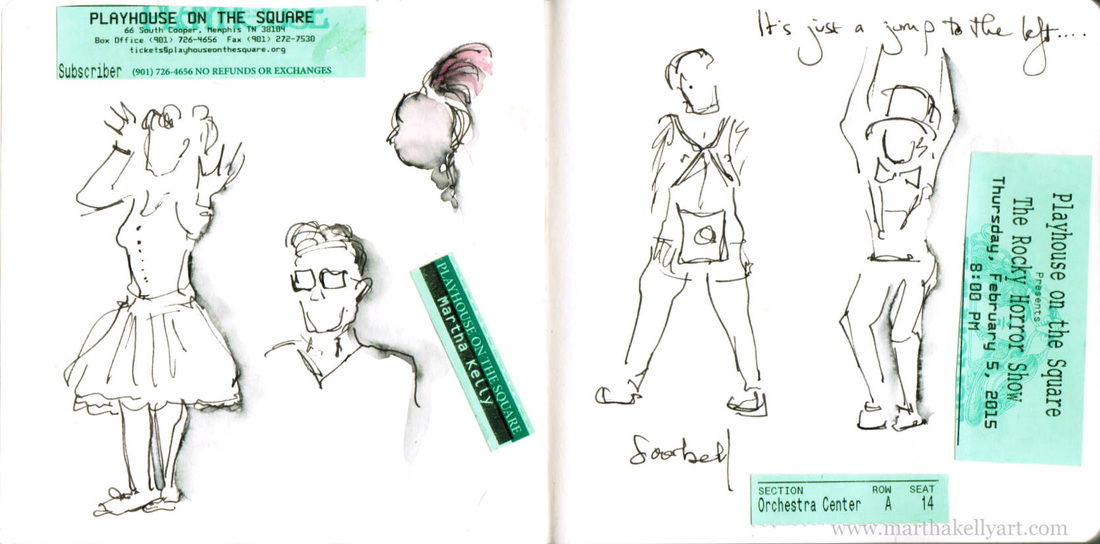 PLAYHOUSE ON THE SQUARE
66 South Cooper, Memphis TN 38104
Box Office (901) 726-4656 Fax (901) 272-7530
tickets@playhouseonthesquare.org
Subscriber (901) 726-4656 NO REFUNDS OR EXCHANGES
PLAYHOUSE ON THE SQUARE
Martha Kelly
It's just a jump to the left....
Playhouse on the Square
Presents
The Rocky Horror Show
Thursday, February 5, 2015
8:00 PM
SECTION ROW SEAT
Orchestra Center A 14
www.marthakellyart.com